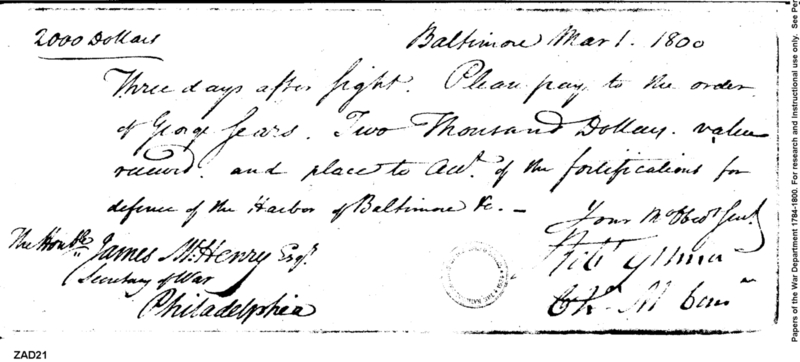 2000 Dollars
Baltimore Mar 1. 1800
Three days after sight. Please pay to the order
of George Sears. Two Thousand Dollars. value
received. and place to Acct. of the fortifications for
defence of the Harbor of Baltimore &c. —
Your Mo Obedt Servt.
The Honble James McHenry Esqr.
Secretary of War
Philadelphia
Papers of the War Department 1784-1800. For research and instructional use only. See Per
ZAD21